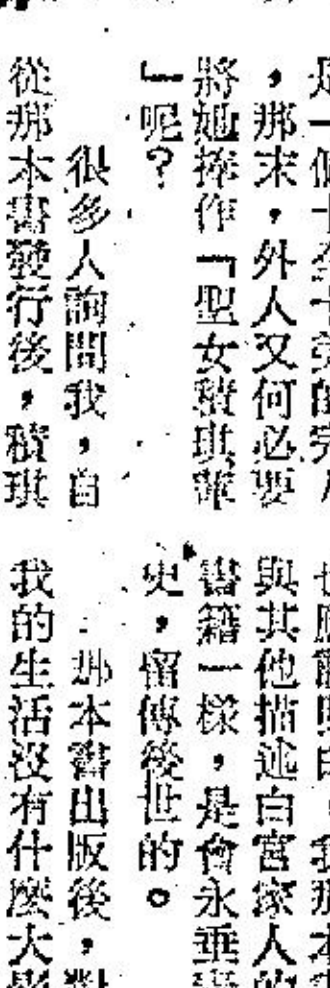 是一個十全十美的完人
，那末，外人又何必要
將她捧作「聖女積琪蓮
」呢？
很多人詢問我，自
從那本書發行後，積琪
與其他描述白宮家人的
書籍一樣，是會永垂
史，留傳後世的。
那本書出版後，對
我的生活沒有什麽大影